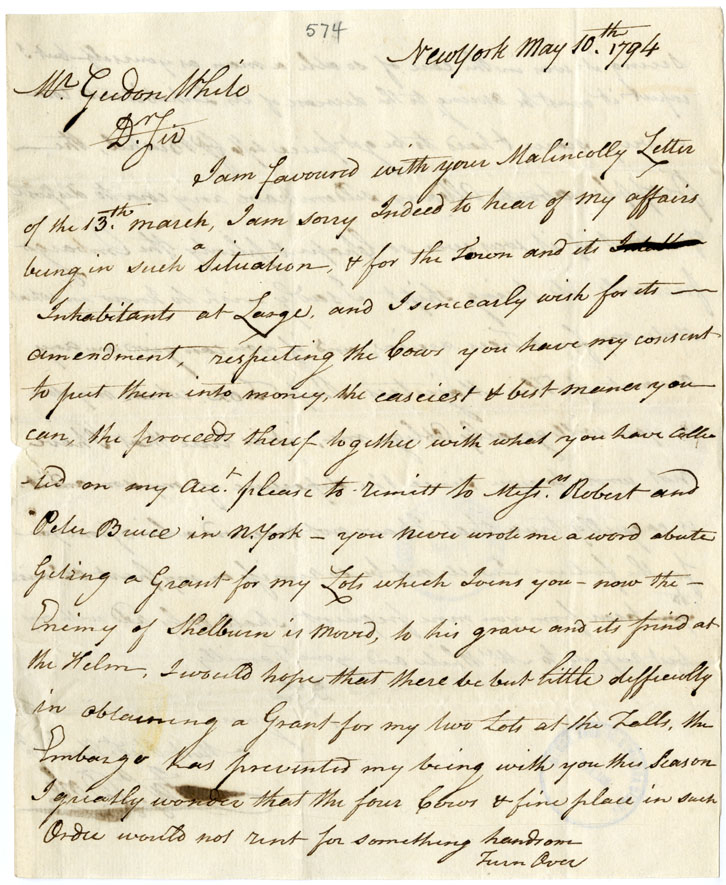 574
NewYork May 10.th 1794
Mr. Gidon White
Dr. Sir
I am favoured with your Malincolly Letter
of the 13.th march, I am sorry Indeed to hear of my affairs
being in such a Situation, & for the Town and its
Inhabitants at Large, and I sincearly wish for its —
amendment, respecting the Cows you have my consent
to put them into money, the easciest & best maner you
can, the proceeds theref together with what you have Colle
-ted on my Acct. please to remitt to Messrs. Robert and
Peter Bruce in N.York – you never wrote me a word abute
Geting a Grant for my Lots which Joins you – now the –
Enimy of Shelburn is moved, to his grave and its frind at
the Helm, I would hope that there be but little difficulty
in obtaining a Grant for my two Lots at the Falls, the
Embargo has prevented my being with you this Season
I greatly wonder that the four Cows & fine place in such
Order would not rent for something handsom
Turn Over